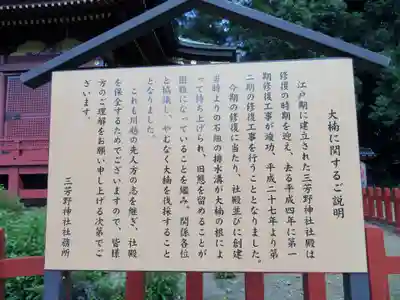 大楠に関するご説明
江戸期に建立された三芳野神社社殿は
修復の時期を迎え、去る平成四年に第一
期修復工事が竣功、平成二十七年より第
二期の修復工事を行うこととなりました。
今期の修復に当たり、社殿並びに創建
当時よりの石畑の排水溝が大楠の根によ
って持ち上げられ、旧態を留めることが
困難になっていることを鑑み、関係各位
と協議し、やむなく大楠を伐採すること
となりました。
これも川越の先人方の志を継ぎ、社殿
を保全するためでございますので、皆様
方のご理解をお願い申し上げる次第でご
ざいます。
三芳野神社社務所